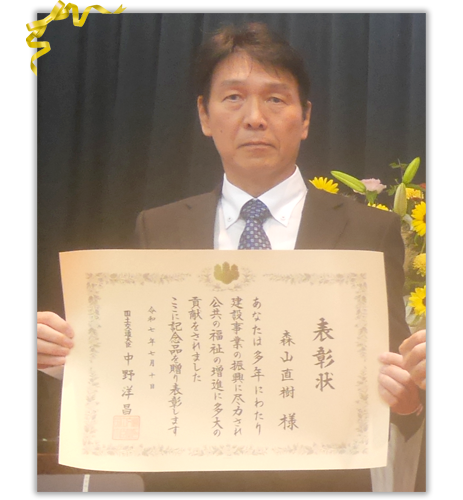 表彰状
森山直樹 様
あなたは多年にわたり
建設事業の振興に尽力され
公共の福祉の増進に多大の
貢献をされました
ここに記念品を贈り表彰します
令和七年七月十日
国土交通大臣 中野洋昌